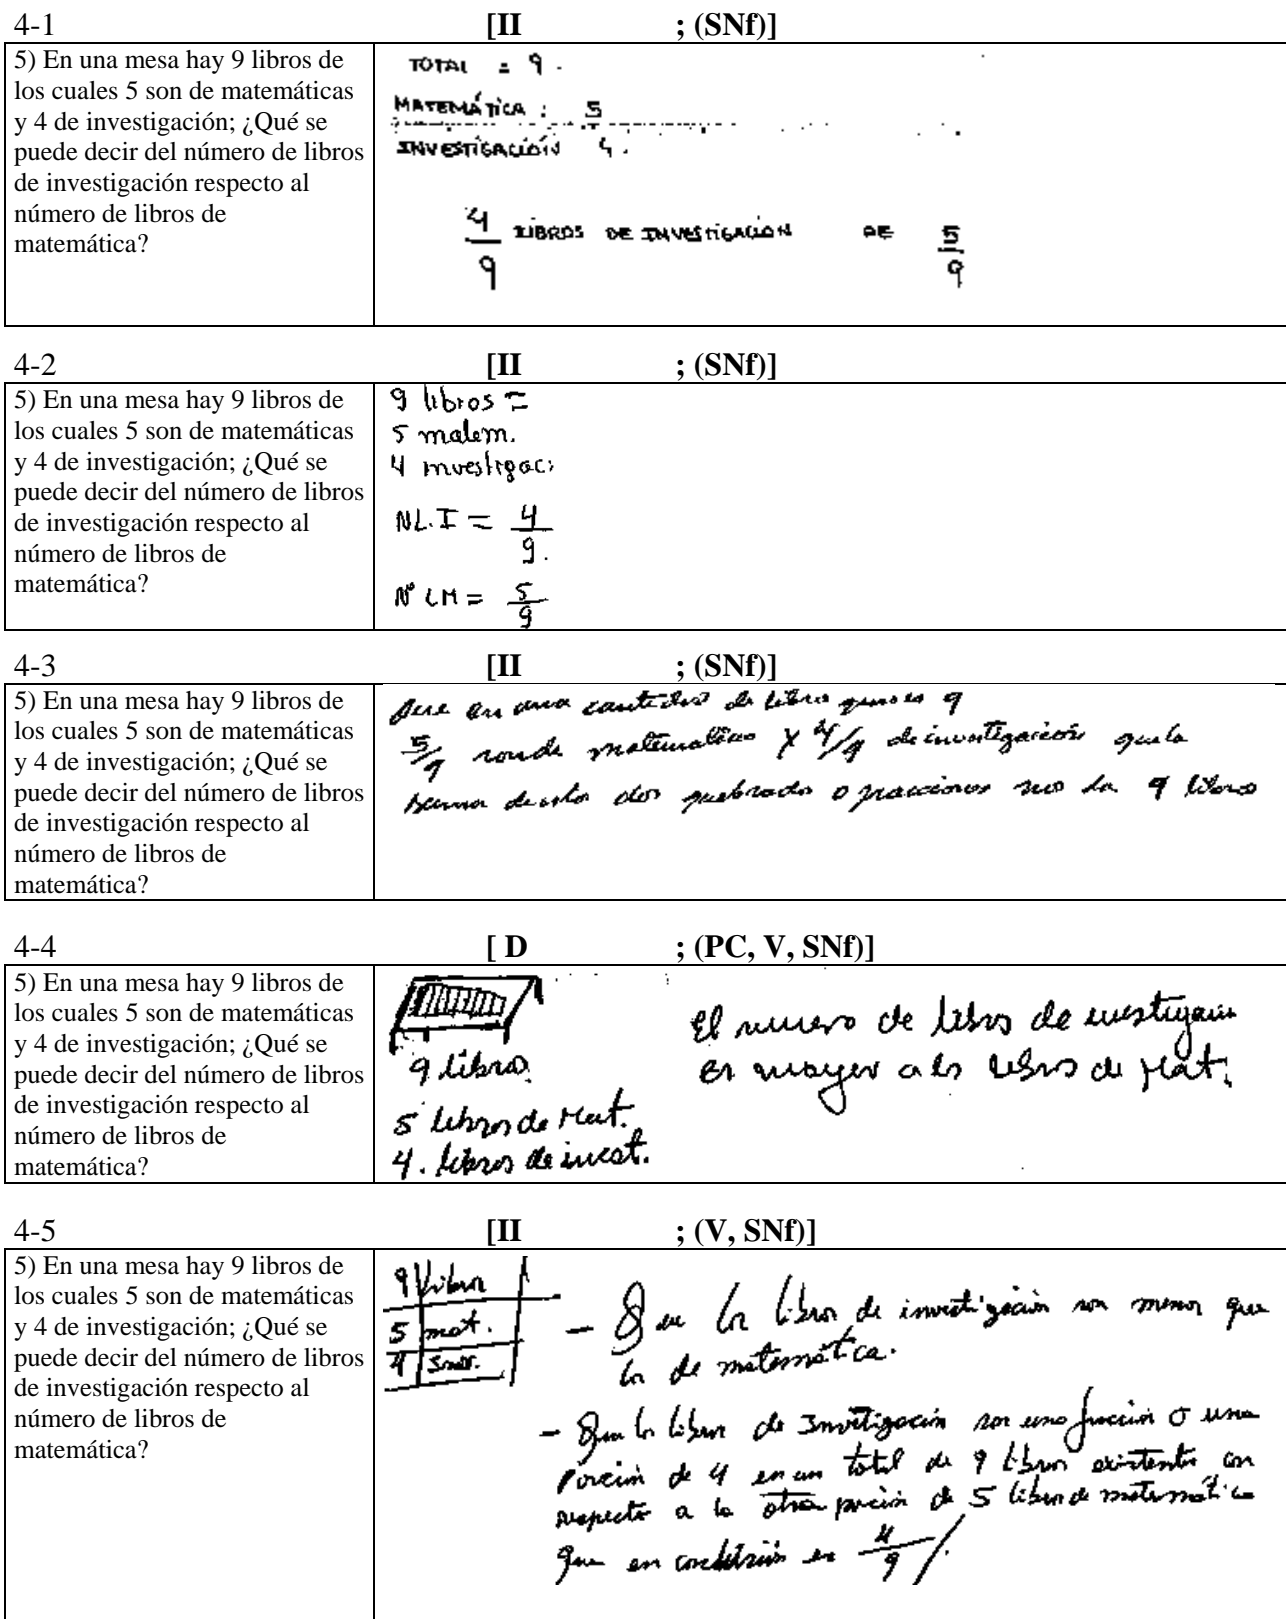 4-1 [II ; (SNf)]
5) En una mesa hay 9 libros de
los cuales 5 son de matemáticas
y 4 de investigación; ¿Qué se
puede decir del número de libros
de investigación respecto al
número de libros de
matemática?
TOTAL = 9.
MATEMÁTICA : 5
INVESTIGACIÓN 4.
4/9 LIBROS DE INVESTIGACION DE 5/9
4-2 [II ; (SNf)]
5) En una mesa hay 9 libros de
los cuales 5 son de matemáticas
y 4 de investigación; ¿Qué se
puede decir del número de libros
de investigación respecto al
número de libros de
matemática?
9 libros =
5 matem.
4 investigaci
NL.I = 4/9.
N° LM = 5/9
4-3 [II ; (SNf)]
5) En una mesa hay 9 libros de
los cuales 5 son de matemáticas
y 4 de investigación; ¿Qué se
puede decir del número de libros
de investigación respecto al
número de libros de
matemática?
en una cantidad de libro que es 9
5/9 son de matematicas y 4/9 de investigación que la
suma de estos dos quebrados o fracciones nos da 9 libros
4-4 [ D ; (PC, V, SNf)]
5) En una mesa hay 9 libros de
los cuales 5 son de matemáticas
y 4 de investigación; ¿Qué se
puede decir del número de libros
de investigación respecto al
número de libros de
matemática?
9 libros.
5 libros de Mat.
4. libros de invest.
El numero de libros de investigación
es mayor a los libros de Mat.
4-5 [II ; (V, SNf)]
5) En una mesa hay 9 libros de
los cuales 5 son de matemáticas
y 4 de investigación; ¿Qué se
puede decir del número de libros
de investigación respecto al
número de libros de
matemática?
9 Libros
5 mat.
4 Inv.
- Que los libros de investigación son menor que
los de matemática.
- Que los libros de Investigación son una fracción o una
porción de 4 en un total de 9 libros existentes con
respecto a la otra porción de 5 libros de matemática
que en conclusión es 4/9.